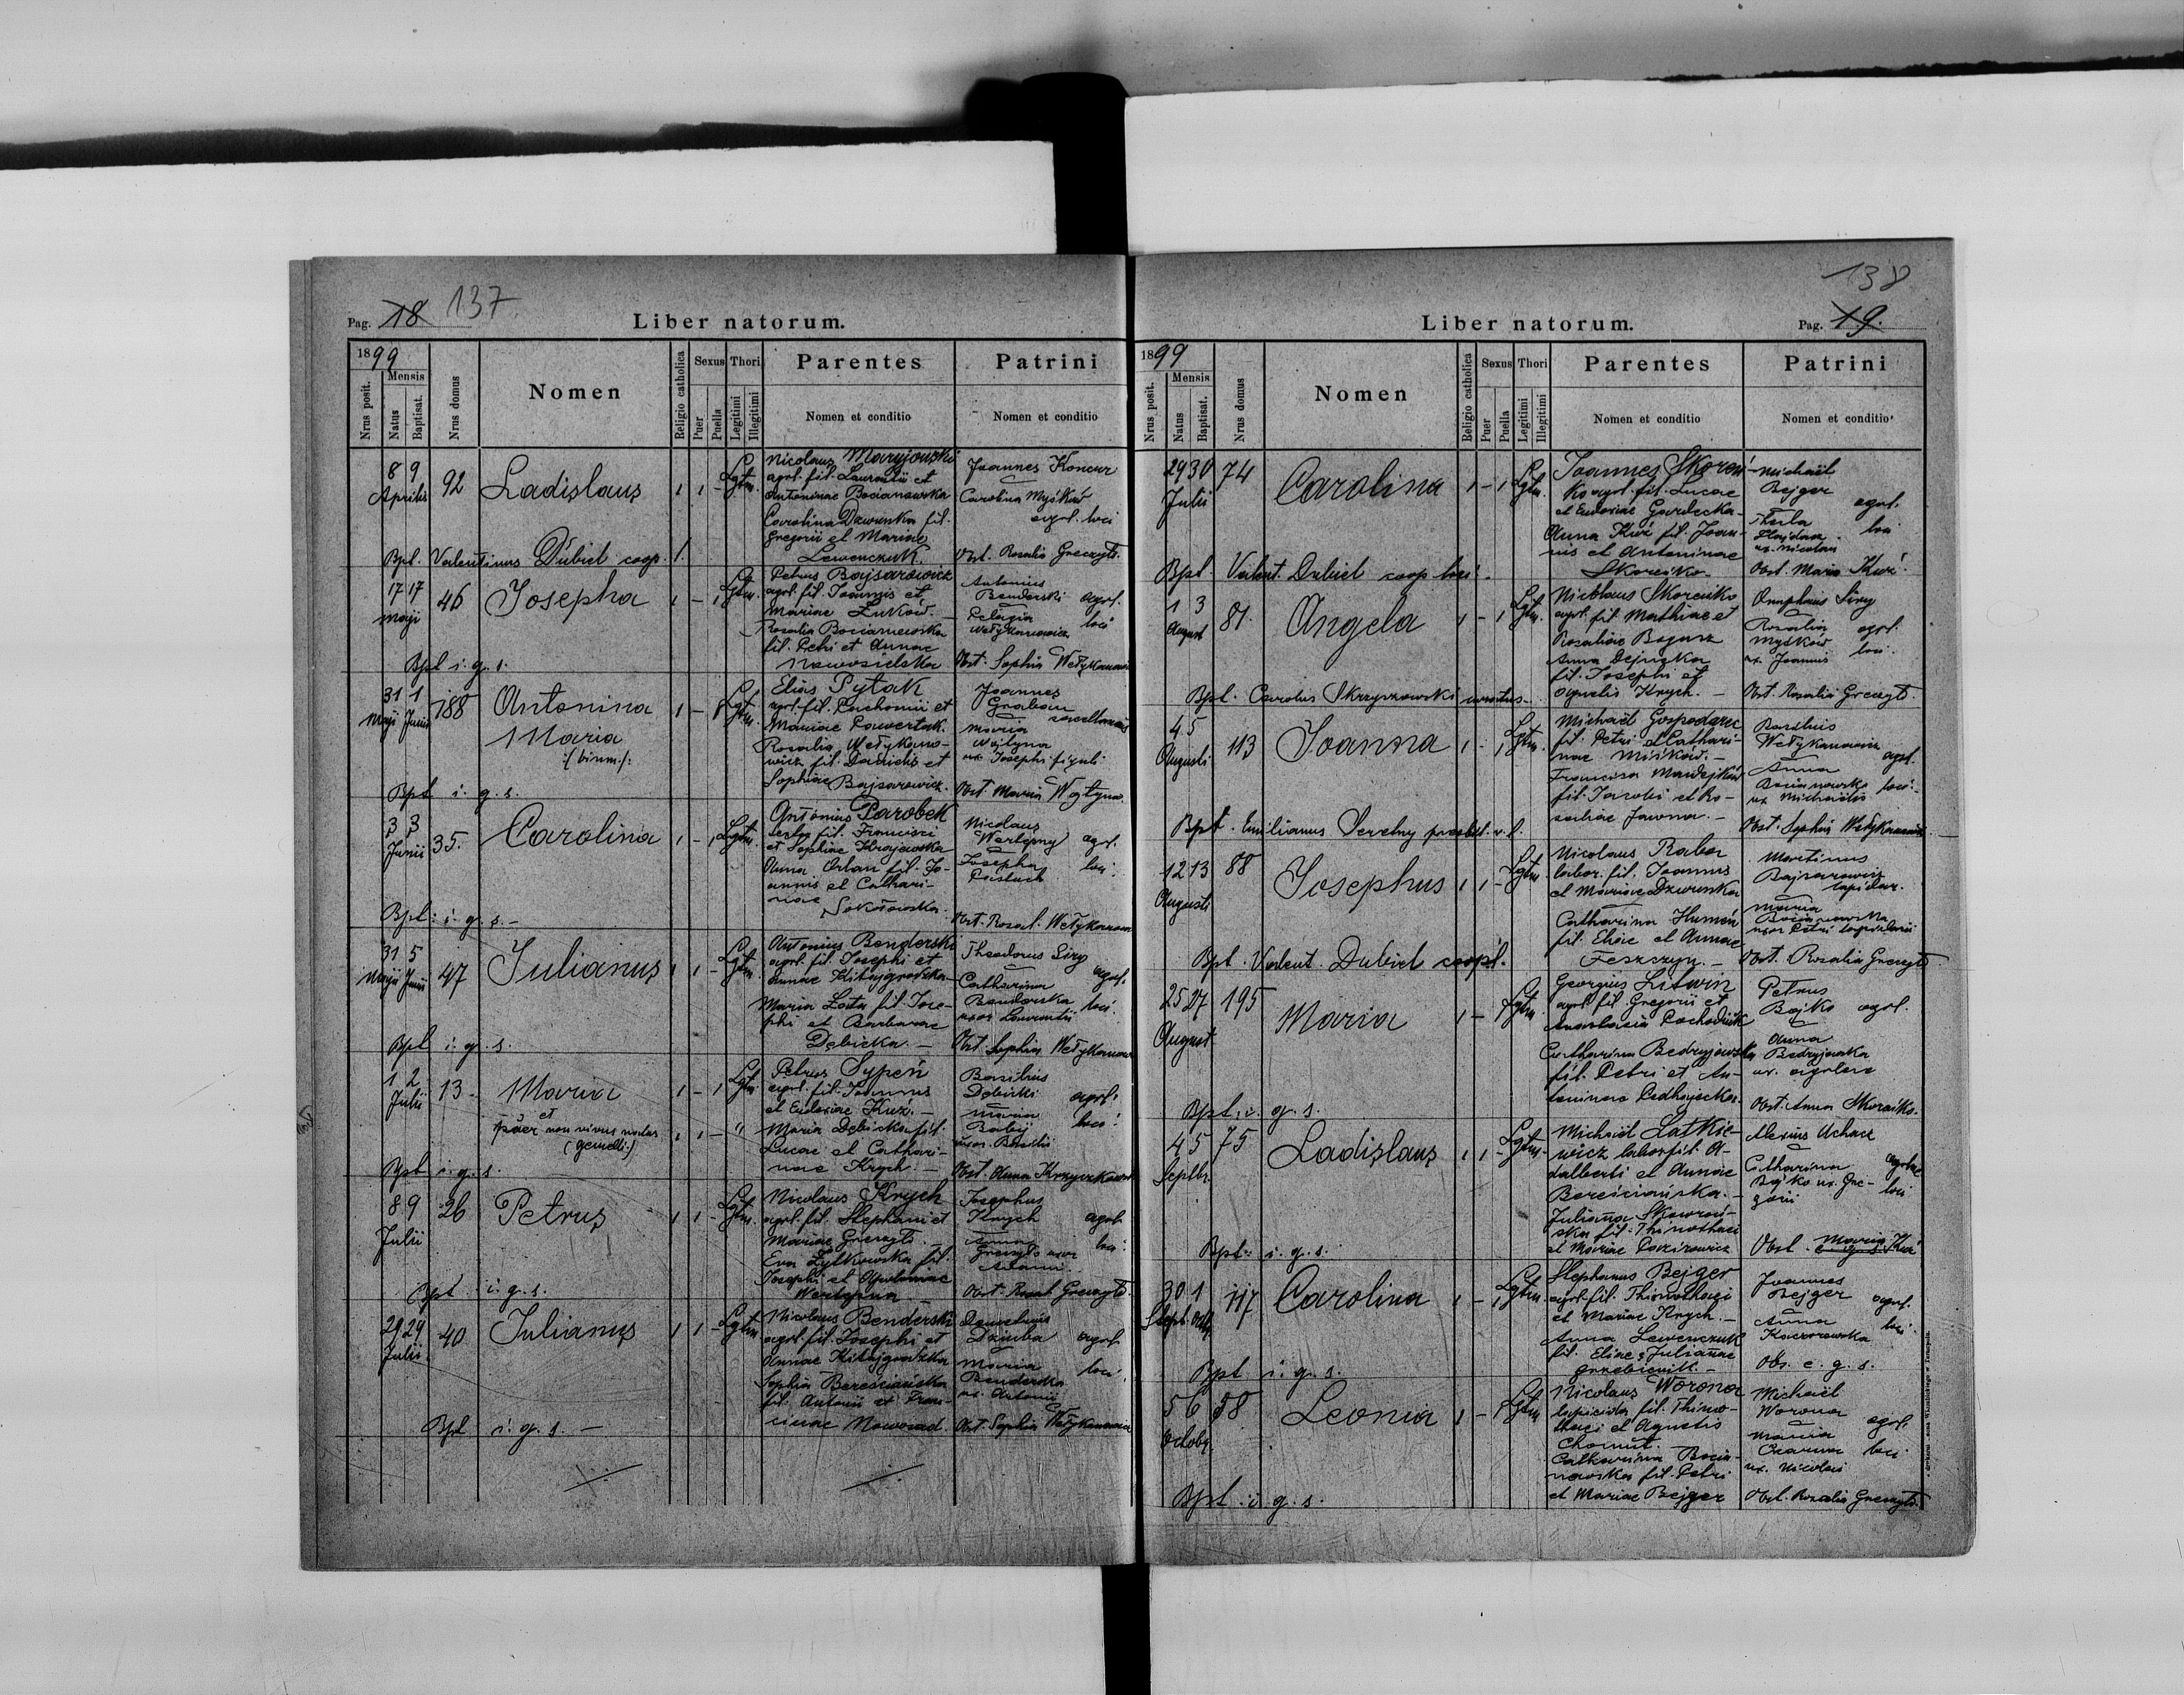 Pag. 18 137
Liber natorum.
1899
Nrus posit.
Mensis
Natus
Baptisat.
Nrus domus
Nomen
Religio catholica
Sexus
Puer
Puella
Thori
Legitimi
Illegitimi
Parentes
Nomen et conditio
Patrini
Nomen et conditio
8 9
Aprilis
92
Ladislaus
1 1 -
Lgtm.
Nicolaus Maryjowski
agrl. fil. Laurentii et
Antoninae Bocianowska
Carolina Dzwinska fil.
Gregorii et Mariae
Lewenczuk.
Joannes Koncur
Carolina Myśków
agrl. loci
Obst. Rosalia Greczyło
Bpt. Valentinus Dubiel coop. l.
17 17
Maji
46
Josepha
1 - 1
Lgtm.
Petrus Bajsarowicz
agrl. fil. Joannis et
Mariae Łuków. -
Rosalia Bocianowska
fil. Petri et Annae
Nowosielska
Antonius
Benderski agrl.
Pelagia loci
Wełykanowicz
Obst. Sophia Wełykanowicz
Bpt i. q. s.
31 1
Maji Junii
188
Antonina
Maria
/: binom :/
1 - 1
Lgtm.
Elias Pytak
agrl. fil. Pachomii et
Mariae
Rosalia Wełykano-
wicz fil. Danielis et
Sophiae Bajsarowicz.
Joannes
Graban
Maria
Wojtyna
ux. Josephi figuli
Obst. Maria Wojtyna
Bpt i. q. s.
3 3
Junii
35.
Carolina
1 - 1
Lgtm.
Antonius Parobek
fil. Francisci
et Sophiae Krajewska
Anna Orlan fil. Jo-
annis et Cathari-
nae Sokołowska
Nicolaus
Wertepny agrl.
Josepha loci
Obst. Rosal. Wełykanow
Bpt: i. q. s. -
31 5
Maji Junii
47
Julianus
1 1 -
Lgtm.
Antonius Benderski
agrl. fil. Josephi et
Annae Kitajgrodzka
Maria Łota fil. Jose-
phi et Barbarae
Dębicka. -
Theodorus Siry
Catharina agrl.
Benderska loci
uxor Laurentii
Obst. Sophia Wełykanow
Bpt i. q. s.
1 2
Julii
13.
Maria
et
puer non vivus natus
(gemelli:)
1 - 1
1 1 - "
Lgtm.
Petrus Sypeń
agrl. fil. Joannis
et Eudoxiae Kuź. -
Maria Dębicka fil.
Lucae et Cathari-
nae Krych. -
Basilius
Dębicki agrl.
Maria loci
Babij
uxor Basilii
Obst. Anna Krzyczkowska
Bpt i. q. s.
8 9
Julii
26
Petrus
1 1 -
Lgtm.
Nicolaus Krych
agrl. fil. Stephani et
Mariae Greczyło. -
Eva Żytkowska fil.
Josephi et Apoloniae
Wertepna -
Josephus
Krych agrl.
Anna loci
Greczyło uxor
Adami.
Obst. Rosal. Greczyło.
Bpt i. q. s.
29 29
Julii
40
Julianus
1 1 -
Lgtm.
Nicolaus Benderski
agrl. fil. Josephi et
Annae Kitajgrodzka
Sophia Bereściańska
fil. Antonii et Fran-
ciscae Nowosad.
Dziuba agrl.
Maria loci
Benderska
ux. Antonii
Obst. Sophia Wełykanowicz
Bpt i. q. s. -
138
Liber natorum.
Pag. 19.
1899
Nrus posit.
Mensis
Natus
Baptisat.
Nrus domus
Nomen
Religio catholica
Sexus
Puer
Puella
Thori
Legitimi
Illegitimi
Parentes
Nomen et conditio
Patrini
Nomen et conditio
29 30
Julii
74
Carolina
1 - 1
Lgtm.
Joannes Skoreń-
ko agrl. fil. Lucae
et Eudoxiae Gardecka
Anna Kuź fil. Joan-
nis et Antoninae
Skoreńko
Michaël
Bejger agrl.
Thecla loci
Hajdam
ux. Nicolai
Obst. Maria Kuź.
Bpt. Valent. Dubiel coop loci.
1 3
August
81.
Angela
1 - 1
Lgtm.
Nicolaus Skoreńko
agrl. fil. Mathiae et
Rosaliae Bogusz
Anna Dejnska
fil. Josephi et
Agnetis Krych. -
Onuphrius Siry
Rosalia agrl.
Myśków loci.
ux. Joannis
Obst. Rosalia Greczyło.
Bpt. Carolus Skrzyszowski
4 5
Augusti
113
Joanna
1 - 1
Lgtm.
Michaël Gospodarec
fil. Petri et Cathari-
nae Miśków. -
Francisca Mandejków
fil. Jacobi et Ro-
saliae Jawna. -
Basilius
Wełykanowicz agrl.
Anna
Bocianowska loci.
ux. Michaëlis
Obst. Sophia Wełykanowicz
Bpt. Emilianus Serelny presbit. r. l.
12 13
Augusti
88
Josephus
1 1 -
Lgtm.
Nicolaus Rabar
labor. fil. Joannis
et Mariae Dzwinska
Catharina Humeń
fil. Eliae et Annae
Feszczyn. -
Martinus
Bajsarowicz
lapidar.
Maria
Bocianowska
uxor Petri lapidarii
Obst. Rosalia Greczyło
Bpt. Valent. Dubiel coop l.
25 27
August
195
Maria
1 - 1
Lgtm.
Georgius Litwin
agrl. fil. Gregorii et
Anastasia Pochodiuk
Catharina Bedryjowska
fil. Petri et An-
toninae Podhajecka.
Petrus
Bojko agrl.
Anna
Bedryjowska
ux. agrlae
Obst. Anna Skoreńko.
Bpt. i. q. s.
4 5
Septbr.
75
Ladislaus
1 1 -
Lgtm.
Michaël Łatkie-
wicz labor fil. A-
dalberti et Annae
Bereściańska. -
Julianna Skoweroń-
ska fil. Thimothaei
et Mariae Łazirowicz
Alexius Uchacz
Catharina agrlae
Bojko ux. Gre- loci
gorii
Obst. Maria Kuź
Bpt: i. q. s.
30 1
Sept. Octb.
117
Carolina
1 - 1
Lgtm.
Stephanus Bejger
agrl. fil. Thimothaei
et Mariae Krych. -
Anna Lewenczuk
fil. Eliae & Juliannae
Grzebieniik. -
Joannes
Bejger agrl.
Anna loci.
Kaczorowska
Obs. e. q. s.
Bpt i. q. s.
5 6
Octobr.
58
Leonia
1 - 1
Lgtm.
Nicolaus Worona
lapicida fil. Thimo-
thaei et Agnetis
Chomut.
Catharina Bocia-
nowska fil. Petri
et Mariae Bejger
Michaël
Worona agrl.
Maria
Czarna loci
ux. Nicolai
Obst. Rosalia Greczyło.
Bpt i. q. s.